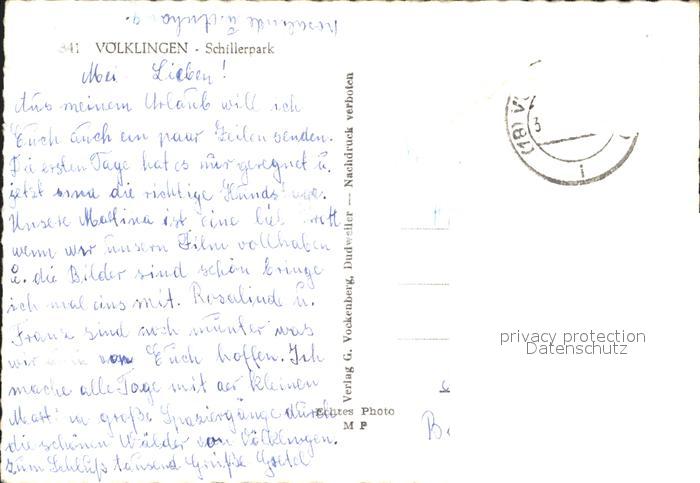 Rosalinde u. Anhang.
341 VÖLKLINGEN - Schillerpark
Mei Lieben!
Aus meinem Urlaub will ich
Euch auch ein paar Zeilen senden.
Die ersten Tage hat es nur geregnet u.
jetzt sind die richtige Hunds
Unsere Martina ist eine
wenn wir unsern Film voll haben
u. die Bilder sind schön bringe
ich mal eins mit. Rosalinde u.
Franz sind noch munter was
wir von Euch hoffen. Ich
mache alle Tage mit der kleinen
Mart große Spaziergänge durch
die schönen Wälder von Völklingen.
Zum Schluß tausend Grüße Gretel
Verlag G. Vockenberg, Dudweiler — Nachdruck verboten
Echtes Photo
M P
privacy protection
Datenschutz